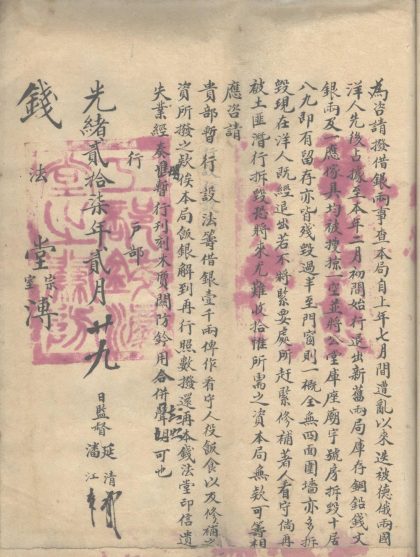 為咨請撥借銀兩事查本局自上年七月間遭亂以來迭被德俄兩國
洋人先後占據至本年二月初間始行退出新舊兩局庫存銅鉛錢文
銀兩及一應傢具均被搜掠一空並將公堂庫座廟宇號房拆毀十居
八九即有留存亦皆殘毀過半至門窗則一概全無四面圍墻亦多拆
毀現在洋人既經退出若不將緊要處所趕緊修補著人看守倘再
被土匪潛行拆毀恐將來尤難收拾惟所需之資本局無款可籌相
應咨請
貴部暫行設法籌借銀壹千兩俾作看守人役飯食以及修補之
資所撥之款俟本局飯銀解到再行照數撥還再本錢法堂印信遺
失業經奏准暫行刊刻木質關防鈐用合併聲明可也
行
戶部
光緒貳拾柒年貳月廿九
日監督
延清
潘江
錢法堂
宗室溥